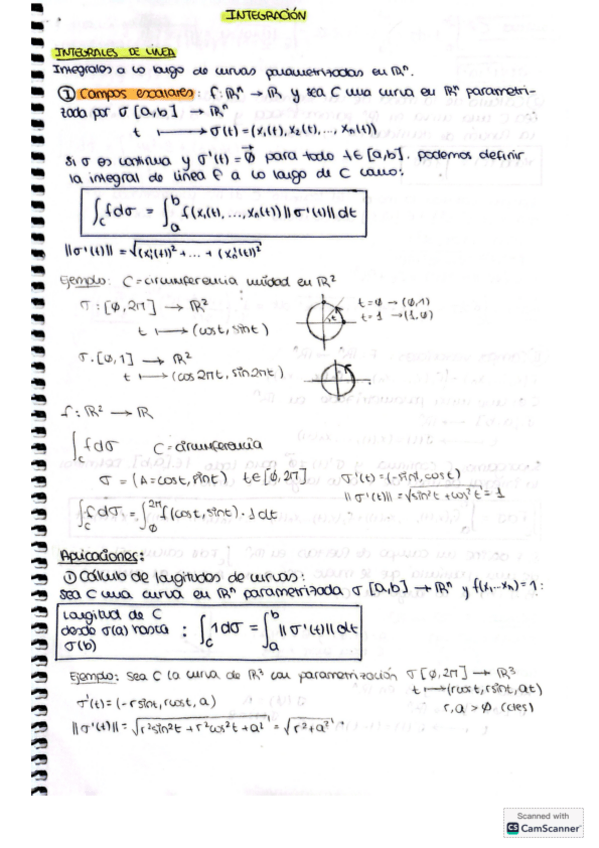 INTEGRACIÓN
INTEGRALES DE LÍNEA
Integrales a lo largo de curvas parametrizadas en ℝⁿ.
① Campos escalares: f: ℝⁿ → ℝ y sea C una curva en ℝⁿ parametri-
zada por σ [a,b] → ℝⁿ
t ⟼ σ(t) = (x₁(t), x₂(t), ..., xₙ(t))
Si σ es continua y σ'(t) = 0⃗ para todo t∈[a,b], podemos definir
la integral de línea f a lo largo de C como:
∫_C f dσ = ∫_a^b f(x₁(t), ..., xₙ(t)) ||σ'(t)|| dt
||σ'(t)|| = √(x₁'(t))² + ... + (xₙ'(t))²
Ejemplo: C = circunferencia unidad en ℝ²
σ: [0, 2π] → ℝ²
t ⟼ (cos t, sin t)
t = 0 → (0,1)
t = 1 → (1,0)
σ. [0,1] → ℝ²
t ⟼ (cos 2πt, sin 2πt)
f: ℝ² → ℝ
∫_C f dσ C = circunferencia
σ = (A = cos t, sin t) t∈[0, 2π] σ'(t) = (-sin t, cos t)
||σ'(t)|| = √sin² t + cos² t = 1
∫_C f dσ = ∫_0^2π f(cos t, sin t) · 1 dt
Aplicaciones:
① Cálculo de longitudes de curvas:
Sea C una curva en ℝⁿ parametrizada σ [a,b] → ℝⁿ y f(x₁...xₙ) = 1:
Longitud de C
desde σ(a) hasta
σ(b)
: ∫_C 1 dσ = ∫_a^b ||σ'(t)|| dt
Ejemplo: Sea C la curva de ℝ³ con parametrización σ [0, 2π] → ℝ³
t ⟼ (r cos t, r sin t, at)
σ'(t) = (-r sin t, r cos t, a)
r, a > 0 (ctes)
||σ'(t)|| = √r² sin² t + r² cos² t + a² = √r² + a²
Scanned with
CS CamScanner